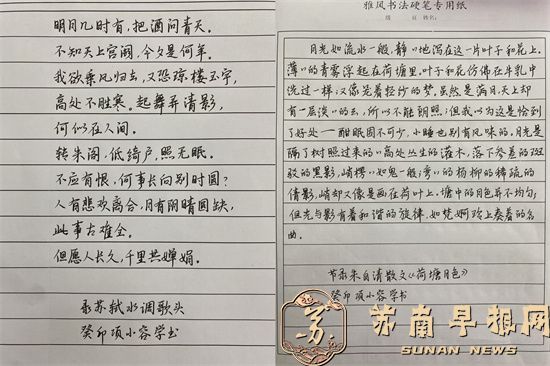 明月几时有,把酒问青天。
不知天上宫阙,今夕是何年。
我欲乘风归去,又恐琼楼玉宇,
高处不胜寒。起舞弄清影,
何似在人间。
转朱阁,低绮户,照无眠。
不应有恨,何事长向别时圆?
人有悲欢离合,月有阴晴圆缺,
此事古难全。
但愿人长久,千里共婵娟。
录苏轼水调歌头
癸卯项小容学书
雅风书法硬笔专用纸
姓名:
月光如流水一般,静々地泻在这一片叶子和花上。
薄々的青雾浮起在荷塘里。叶子和花仿佛在牛乳中
洗过一样;又像笼着轻纱的梦。虽然是满月,天上却
有一层淡々的云,所以不能朗照;但我以为这是恰到
了好处——酣眠固不可少,小睡也别有风味的。月光是
隔了树照过来的,高处丛生的灌木,落下参差的斑
驳的黑影,峭楞々如鬼一般;弯々的杨柳的稀疏的
倩影,峭却又像是画在荷叶上。塘中的月色并不均匀;
但光与影有着和谐的旋律,如梵婀玲上奏着的名
曲。
节录朱自清散文《荷塘月色》
癸卯项小容学书
苏南早报网
SUNAN NEWS